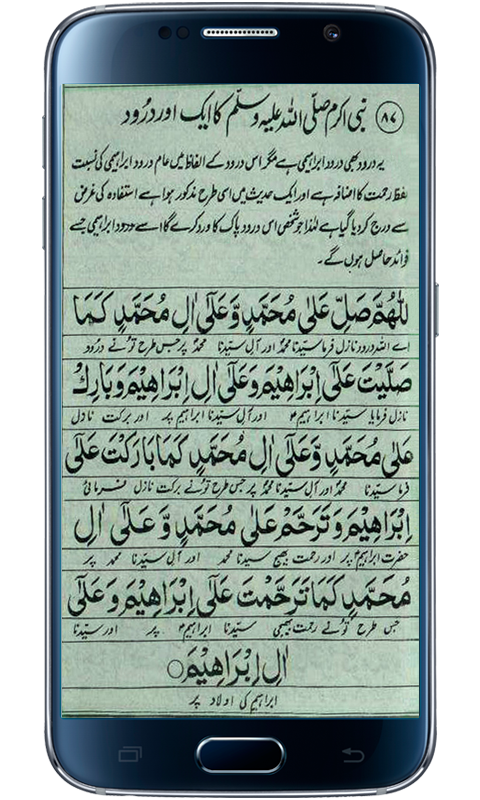 ۸۷ نبی اکرم صلّی اللہ علیہ وسلّم کا ایک اور درُود
یہ درود بھی درود ابراہیمی ہے مگر اس درود کے الفاظ میں عام درود ابراہیمی کی نسبت
لفظ رحمت کا اضافہ ہے اور ایک حدیث میں اسی طرح مذکور ہوا ہے استفادہ کی غرض
سے درج کر دیا گیا ہے لہٰذا جو شخص اس درود پاک کا ورد کرے گا اسے درود ابراہیمی جیسے
فوائد حاصل ہوں گے۔
للّٰهُمَّ صَلِّ عَلٰى مُحَمَّدٍ وَّعَلٰٓى اٰلِ مُحَمَّدٍ كَمَا
اے اللہ درود نازل فرما سیّدنا محمّدؐ اور آلِ سیّدنا محمّدؐ پر جس طرح تُو نے درُود
صَلَّيْتَ عَلٰٓى اِبْرَاهِيْمَ وَعَلٰٓى اٰلِ اِبْرَاهِيْمَ وَبَارِكْ
نازل فرمایا سیّدنا ابراہیمؑ اور آلِ سیّدنا ابراہیم پر اور برکت نازل
عَلٰى مُحَمَّدٍ وَّعَلٰٓى اٰلِ مُحَمَّدٍ كَمَا بَارَكْتَ عَلٰٓى
فرما سیّدنا محمّدؐ اور آل سیّدنا محمّدؐ پر جس طرح تُو نے برکت نازل فرمائی
اِبْرَاهِيْمَ وَتَرَحَّمْ عَلٰى مُحَمَّدٍ وَّعَلٰٓى اٰلِ
حضرت ابراہیمؑ پر اور رحمت بھیج سیدنا محمد اور آلِ سیّدنا محمد پر
مُحَمَّدٍ كَمَا تَرَحَّمْتَ عَلٰٓى اِبْرَاهِيْمَ وَعَلٰٓى
جس طرح تُو نے رحمت بھیجی سیّدنا ابراہیمؑ پر اور سیّدنا
اٰلِ اِبْرَاهِيْمَ○
ابراہیم کی اولاد پر